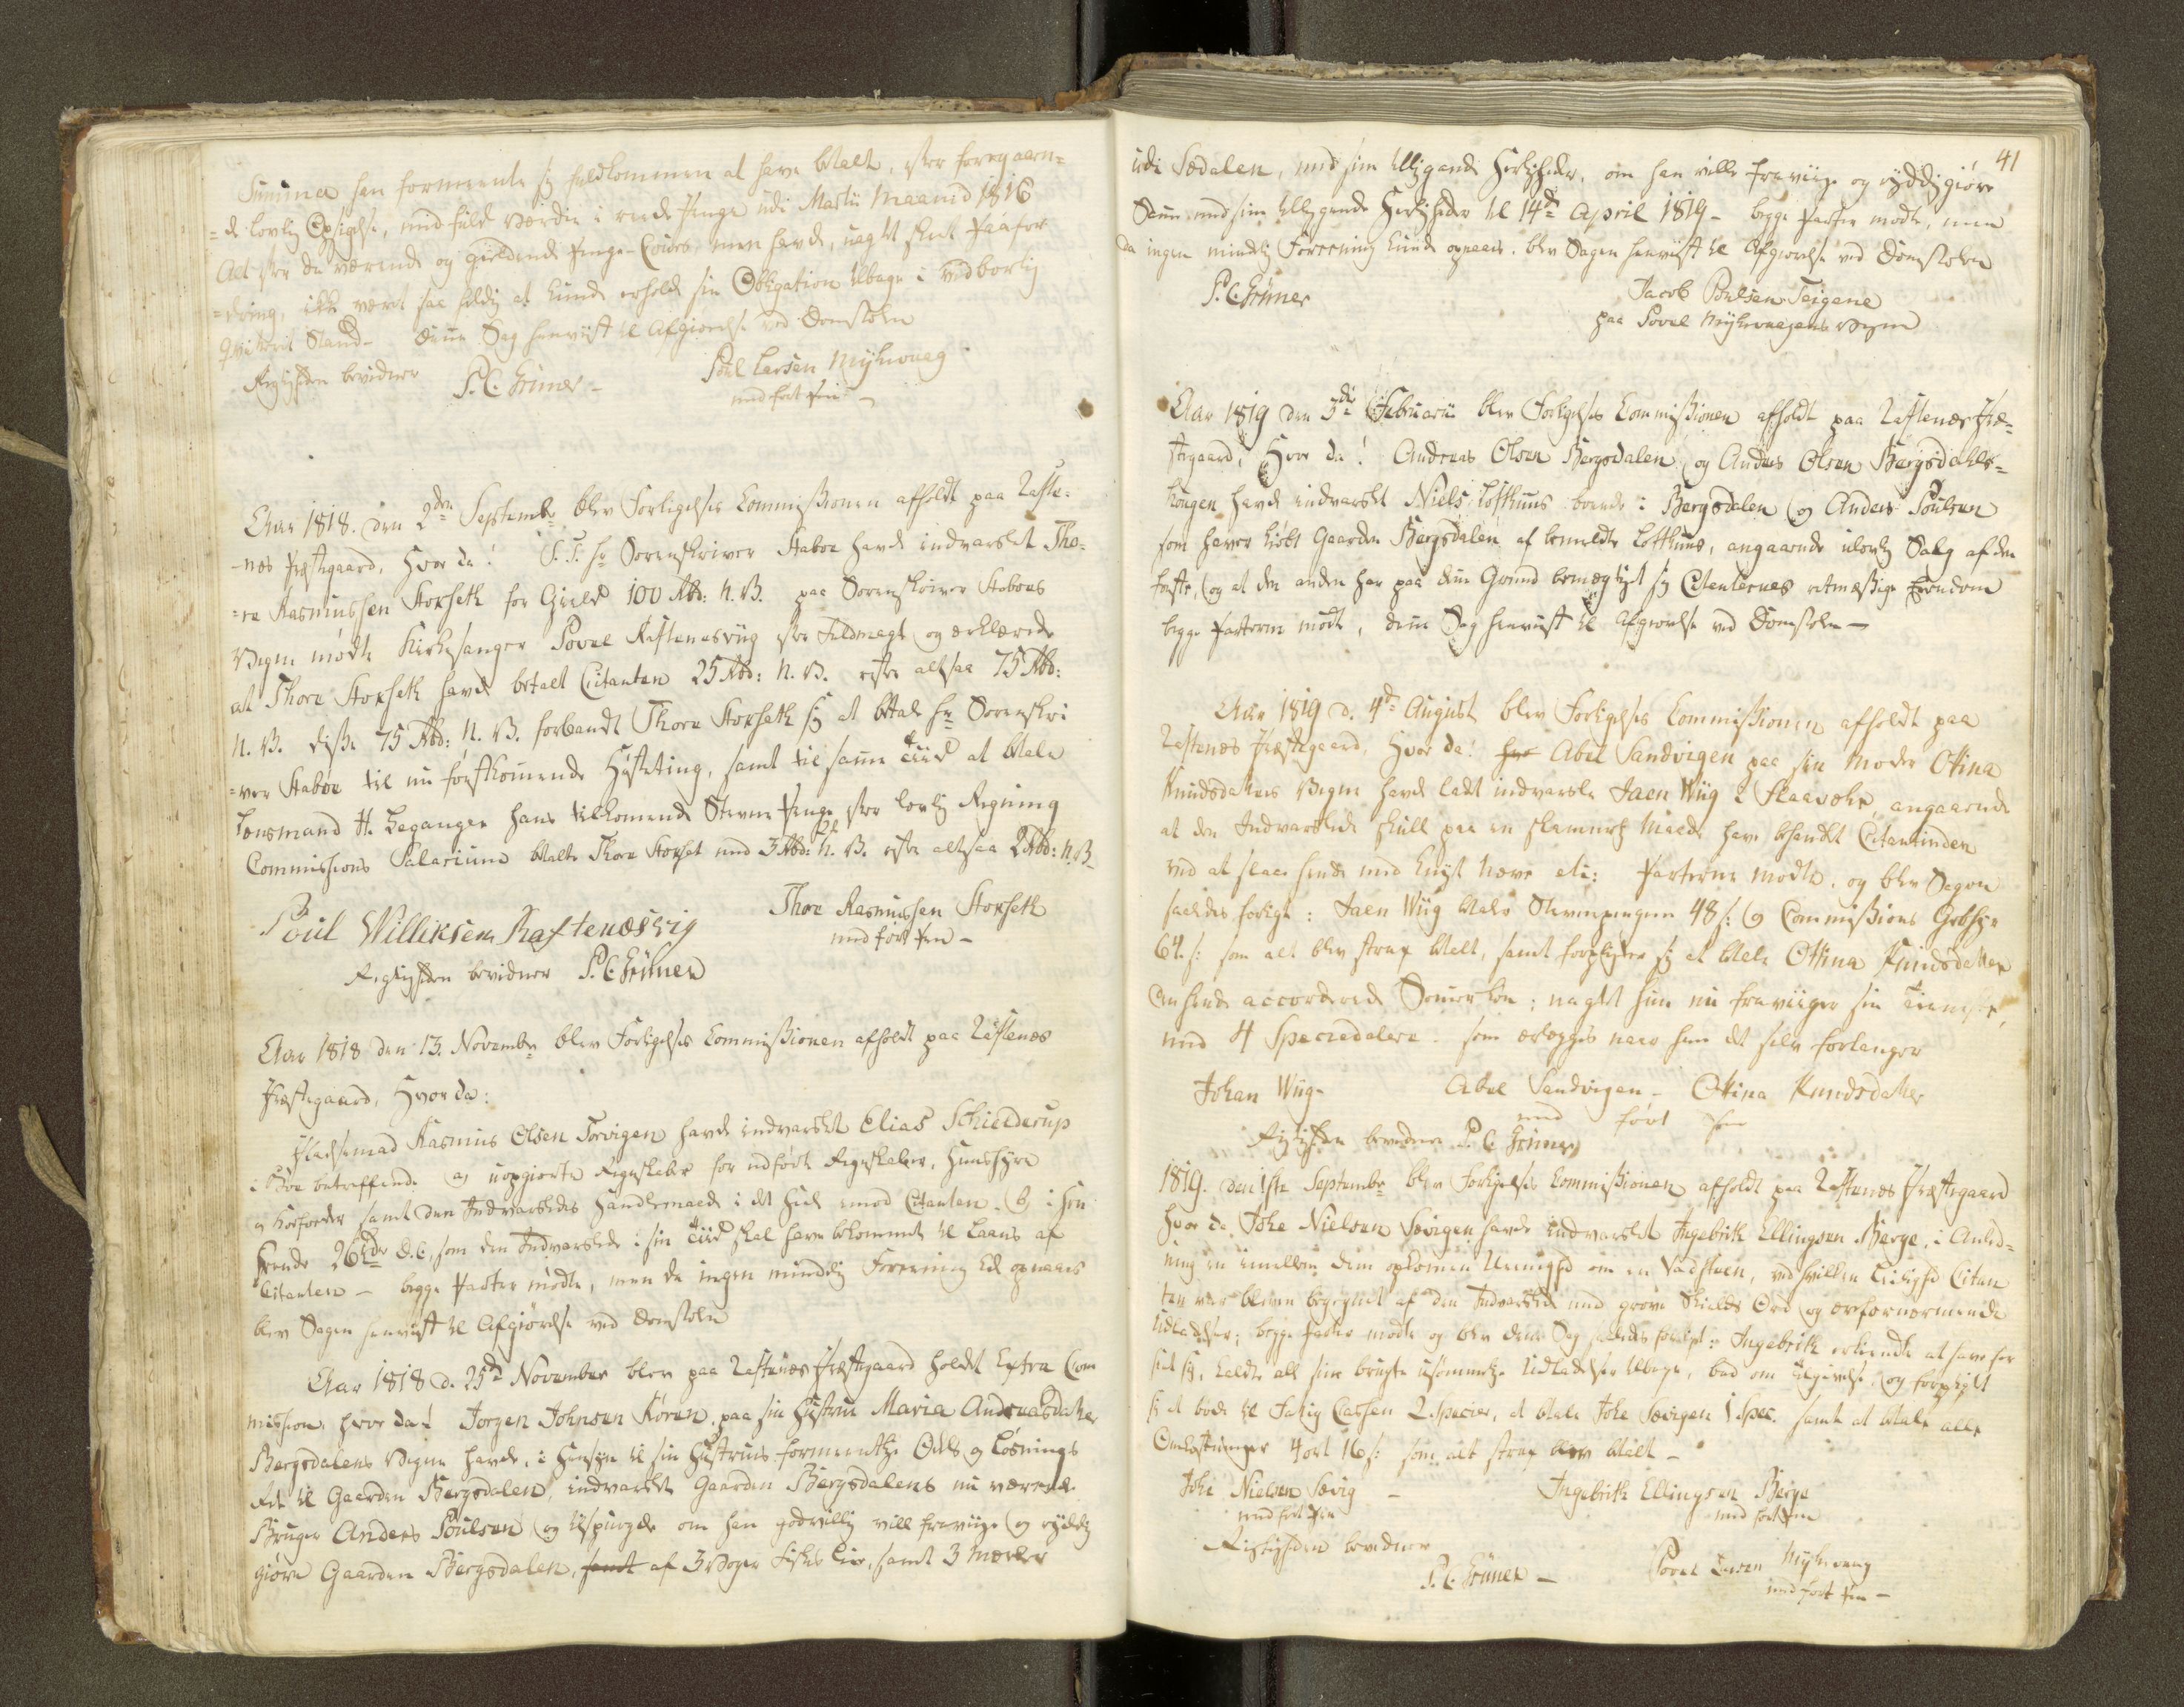 Summa han formeente sig fuldkommen at have betalt, efter foregaaen-
=de lovlig Opsigelse, med fuld værdie i rede Penge udi Martii Maaned 1816
Alt efter da værende og gieldende Penge-Cours, men havde, uagtet skeet Paafor
=dring, ikke været saa heldig at kunde erholde sin Obligation tilbage i vedbørlig
Qviterit Stand - Denne Sag henviist til Afgiørelse ved Domstolen
Rigtigheden bevidner P. C. Grüner - Poul Larsen Myhrvaag
med ført Pen -
Aar 1818. den 2den Septembr blev Forligelses Commissionen afholdt paa Rafte-
-næs Præstegaard, Hvor da! S. T. Hr Sorenskriver Staboe havde indvarslet Tho-
=re Rasmussen Storseth for Gield 100 Rbd: N. V. paa Sorenskriver Staboes
Vegne mødte Kirkesanger Povel Raftenæsviig efter Fuldmagt og erklærede
at Thore Storseth havde betalt Citanten 25 Rbd: N. V. rester altsaa 75 Rbd:
N. V. disse 75 Rbd: N. V. forbandt Thore Storseth sig at betale Hr Sorenskri
=ver Staboe til nu førstkommende Høsteting, samt til samme Tiid at betale
Lensmand H. Leganger hans tilkommende Stevne Penge efter lovlig Regning
Commissions Salarium betalte Thore Storset med 3 Rbd: N. V. rester altsaa 2 Rbd: N. V.
Poul Williksen Raftenæsvig Thore Rasmussen Storseth
med ført Pen -
Rigtigheden bevidner P. C. Grüner
Aar 1818 den 13. Novembr blev Forligelses Commissionen afholdt paa Raftenæs
Præstegaard, Hvor da:
Pladsemand Rasmus Olsen Torvigen havde indvarslet Elias Schielderup
i Bøe betreffende a) uopgiorte Regnskaber for udførte Regnskaber, Huushyre
og Kosforder samt den Indvarsledes Handlemaade i det Heele imod Citanten. b) i Hen
seende 26 Rdr D. C., som den Indvarslede i sin Tiid skal have bekommet til Laans af
Citanten - begge Parter mødte, men da ingen mindelig Forening blev opnaaet
blev Sagen henviist til Afgiørelse ved Domstolen
Aar 1818 d. 25de November blev paa Raftenæs Præstegaard holdt Extra Com
mission, hvor da! Jørgen Johnsen Kören, paa sin Hustrue Maria Andreasdatter
Bergsdalens Vegne havde, i Hensyn til sin Hustrues formeentlige Odels og Løsnings
Ret til Gaarden Bergsdalen, indvarslet Gaarden Bergsdalens nu værende
Bruger Anders Poulsen og tilspurgde om han godvillig ville fraviige og ryddig
giøre Gaarden Bergsdalen, samt af 3 Voger Fiskes Leie, samt 3 Mærker
41
udi Sædalen, med sine tilliggende Herligheder, om han ville fraviige og ryddiggiøre
Samme med sine tilliggende Herligheder til 14de April 1819 - begge Parter mødte, men
da ingen mindelig Forening kunde opnaaes, blev Sagen henviist til Afgiørelse ved Domstolen
P. C. Grüner Jacob Poulsen Teigene
paa Povel Myhrvaagens Vegne
Aar 1819 den 3de Februarii blev Forligelses Commissionen afholdt paa Raftenæs Præ-
stegaard, Hvor da! Andreas Olsen Bergsdalen og Anders Olsen Bergsdalss-
hougen havde indvarslet Niels Lofthuus boende i Bergsdalen og Anders Poulsen
som haver kiøbt Gaarden Bergsdalen af bemeldte Lofthuus, angaaende ulovlig Salg af den
første, og at den anden har paa den Grund bemægtiget sig Citanternes retmæssige Eiendom
begge Parterne mødte, denne Sag henviist til Afgiørelse ved Domstolen -
Aar 1819 d. 4de August blev Forligelses Commissionen afholdt paa
Raftenæs Præstegaard, Hvor da! Abel Sandvigen paa sin Moder Otina
Knudsdatters Vegne havde ladt indvarsle Jaen Wiig i Staavehr angaaende
at den Indvarslede skulle paa en skammelig Maade have behandlet Citantinden
ved at slaae hende med knyt Næve etc: Parterne mødte, og blev Sagen
saaledes forligt: Jaen Wiig betaler Stevnepengene 48 s: og Commissions Gebhyr
64 s: som alt blev strax betalt, samt forpligter sig at betale Otina Knudsdatter
den hende accorderede Sommerløn; uagtet hun nu fraviiger sin Tieneste,
med 4 Speciedalere. som erlægges naar hun det selv forlanger
Johan Wiig - Abel Sandvigen - Otina Knudsdatter
med ført Pen
Rigtigheden bevidner P. C. Grüner
1819. den 1ste Septembr blev Forligelses Commissionen afholdt paa Raftenæs Præstegaard
hvor da Johe Nielsen Sævigen havde indvarslet Ingebrik Ellingsen Berge, i Anled-
ning en imellem dem opkommen Ueenighed om en Vadsteen, ved hvilken Leilighed Citan
ten var bleven begegnet af den Indvarslede med grove Skields Ord og ærefornærmende
Udladelser; begge Parter mødte og blev denne Sag saaledes forligt: Ingebrik erkiendte at have for
seet sig, kaldte all sine brugte usømmelige Udladelser tilbage, bad om Tilgivelse, og forpligtet
sig at bøde til Fattig Cassen 2 Specier, at betale Johe Sævigen 1 Spec. samt at betale alle
Omkostninger 4 ort 16 s: som alt strax blev betalt -
Johe Nielsen Sævig - Ingebrik Ellingsen Berge
med ført Pen med ført Pen
Rigtigheden bevidner
P. C. Grüner - Povel Larsen Myhrvaag
med ført Pen -